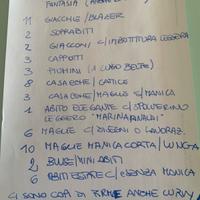 FANTASIA
11 GIACCHE/BLAZER
2 SOPRABITI
2 GIACCONI C/IMBOTTITURA LEGGERA
3 CAPPOTTI
3 PIUMINI (1 LUNGO BEIGE)
8 CASACCHE/CAMICE
3 CASACCHE/MAGLIE S/MANICA
1 ABITO ELEGANTE C/SPOLVERINO LEGGERO "MARINA RINALDI"
6 MAGLIE C/DISEGNI O LAVORAZ.
10 MAGLIE MANICA CORTA/LUNGA
2 BLUSE/MINI ABITI
6 ABITI ESTATE C/SENZA MANICA
CI SONO CAPI DI FIRME ANCHE CURVY